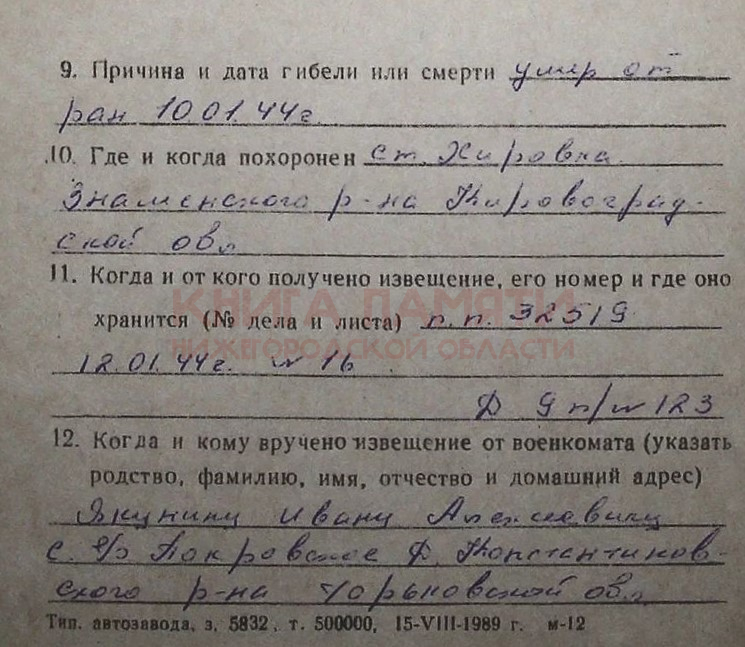 9. Причина и дата гибели или смерти умер от
ран 10.01.44г.
10. Где и когда похоронен ст. Хировка
Знаменского р-на Кировоград-
ской обл
11. Когда и от кого получено извещение, его номер и где оно
КНИГА ПАМЯТИ
хранится (№ дела и листа) п.п. 32519
НИЖЕГОРОДСКОЙ ОБЛАСТИ
12.01.44г. № 16
Д 9 п/№ 123
12. Когда и кому вручено извещение от военкомата (указать
родство, фамилию, имя, отчество и домашний адрес)
Якунину Ивану Алексеевичу
с. Покровское Д. Константинов-
ского р-на Горьковской обл
Тип. автозавода, з. 5832, т. 500000, 15-VIII-1989 г. м-12